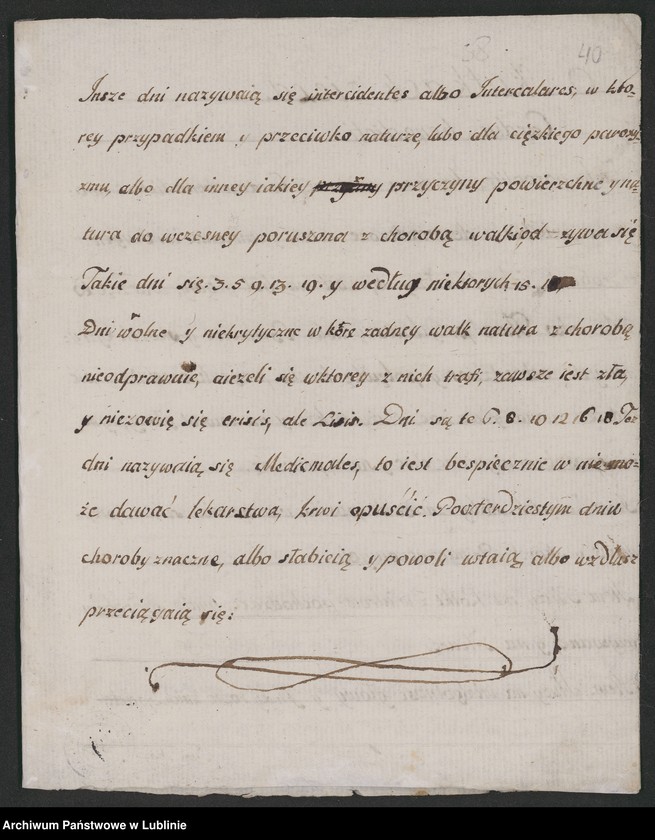 40
Insze dni nazywaią się intercidentes albo Intercalares, w kto-
rey przypadkiem y przeciwko naturze, lubo dla cięzkiego paroxy-
zmu, albo dla inney iakiey przyczyny powierzchney na-
tura do wczesney poruszona z chorobą walki od-zywa się
Takie dni się. 3. 5 9. 13. 19. y według niektorych 15.
Dni wolne y niekrytyczne w które zadney walk natura z chorobą
nieodprawuie, aiezeli się wktorey z nich trafi, zawsze iest zła,
y niezowię się crisis, ale Lisis. Dni są te 6. 8. 10 12 16 18 Tez
dni nazywaią się Medicinales, to iest bespiecznie w nie mo-
że dawać lekarstwa, krwi opuścić. Poczterdziestym dniu
choroby znaczne, albo słabieią y powoli ustaią, albo wzdłusz
przeciągaią się:
Archiwum Państwowe w Lublinie